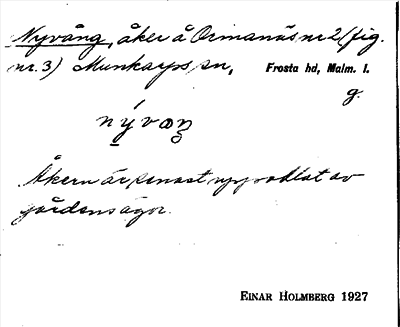 Nyvång, åker å Ormanäs nr 2 (fig.
nr. 3) Munkarps sn, Frosta hd, Malm. l.
g.
nývaŋ
Åkern är senast uppodlat av
gårdens ägor.
EINAR HOLMBERG 1927